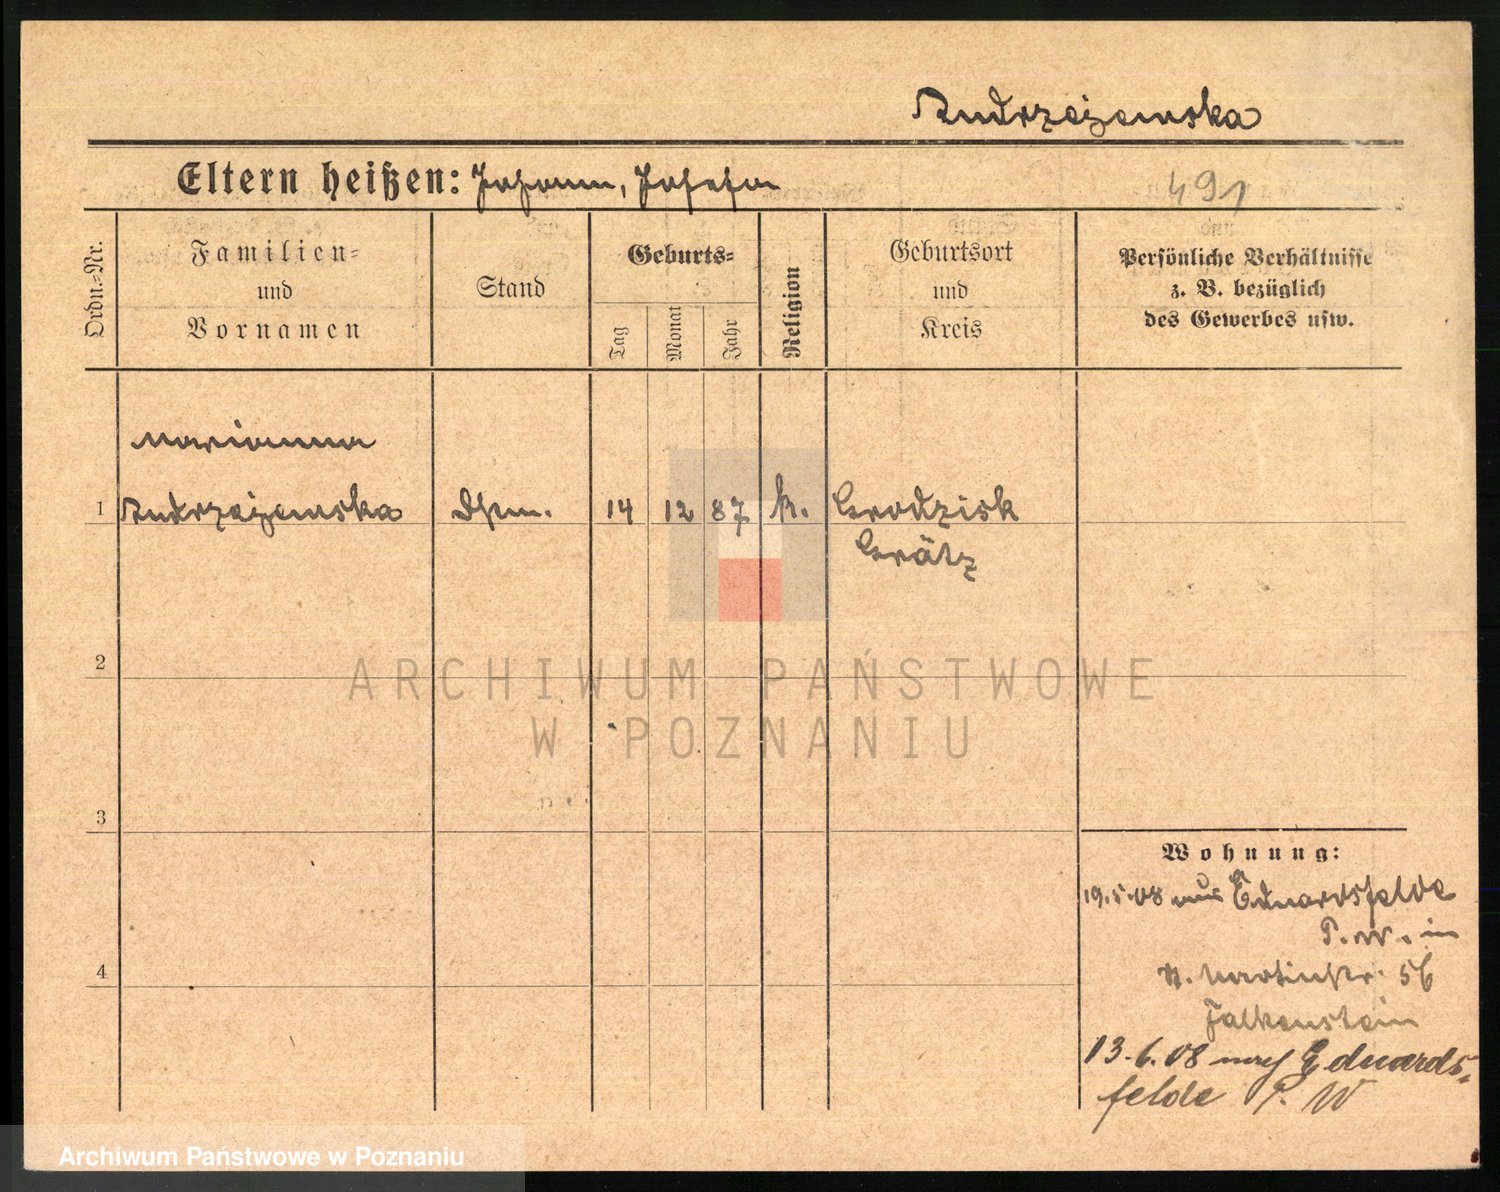 Andrzejewska
Eltern heißen: Johann, Josefa
491
Ordn.-Nr.
Familien=
und
Vornamen
Stand
Geburts=
Tag
Monat
Jahr
Religion
Geburtsort
und
Kreis
Persönliche Verhältnisse
z. B. bezüglich
des Gewerbes usw.
Marianna
1 Andrzejewska Dhm. 14 12 87 k. Grodzisk
Grätz
2
ARCHIWUM PAŃSTWOWE
W POZNANIU
3
Wohnung:
19.5.08 aus Eduardsfelde
P. W. in
Martinstr. 56
4
Falkenstein
13.6.08 nach Eduards-
felde P. W
Archiwum Państwowe w Poznaniu